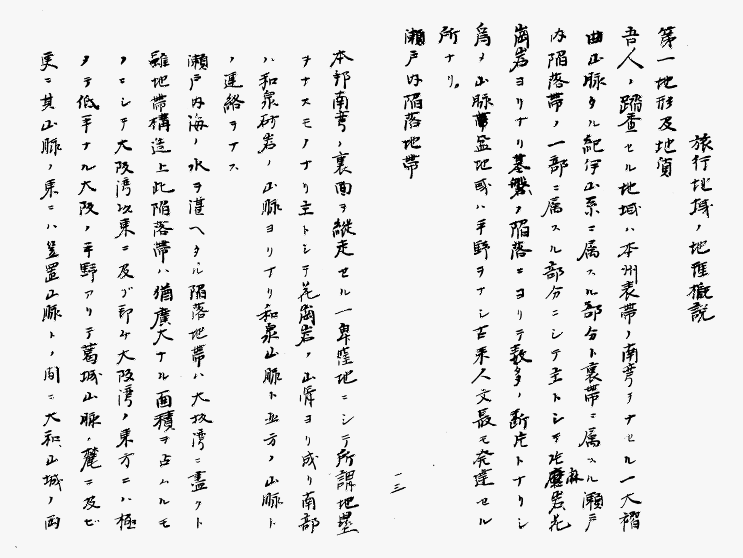 旅行地域ノ地理概説
第一地形及地質
吾人ノ踏査セル地域ハ本州表帯ノ南弯ヲナセル一大褶
曲山脉タル紀伊山系ニ属スル部分ト裏帯ニ属スル瀬戸
内陥落帯ノ一部ニ属スル部分ニシテ主トシテ花麻岩花
崗岩ヨリナリ基盤ノ陥落ニヨリテ数多ノ断片トナリシ
為メ山脉帯盆地或ハ平野ヲナシ古来人文最モ発達セル
所ナリ。
瀬戸内陥落地帯
一三
本邦南弯ノ裏面ヲ縦走セル一卑窪地ニシテ所謂地塁
ヲナスモノナリ主トシテ花崗岩ノ山骨ヨリ成リ南部
ハ和泉砂岩ノ山脉ヨリナリ和泉山脉ト並方ノ山脉ト
ノ連絡ヲナス
瀬戸内海ノ水ヲ湛ヘタル陥落地帯ハ大坂湾ニ盡クト
雖地帯構造上此陥落帯ハ猶廣大ナル面積ヲ占ムルモ
ノニシテ大阪湾以東ニ及ブ即チ大阪湾ノ東方ニハ極
メテ低平ナル大阪ノ平野アリテ葛城山脉ノ麓ニ及ビ
更ニ其山脉ノ東ニハ笠置山脉トノ間ニ大和山城ノ両